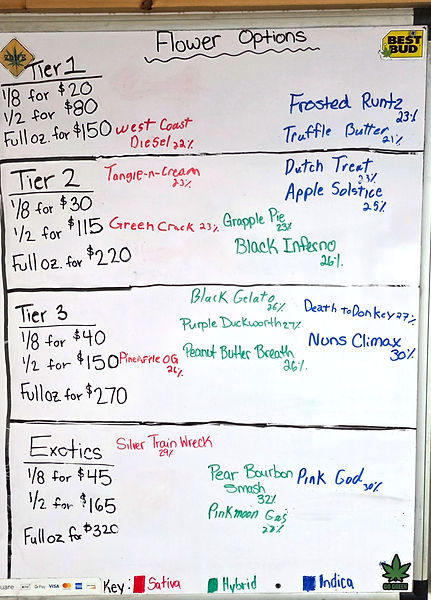 Flower Options
BEST
BUD
Tier 1
1/8 for $20
1/2 for $80
Full oz. for $150
West Coast
Diesel 22%
Frosted Runtz
23%
Truffle Butter
21%
Tier 2
1/8 for $30
1/2 for $115
Full oz. for $220
Tangie-n-Cream
23%
Green Crack 23%
Grapple Pie
23%
Black Inferno
26%
Dutch Treat
23%
Apple Solstice
25%
Tier 3
1/8 for $40
1/2 for $150
Full oz for $270
Pineapple OG
26%
Black Gelato
26%
Purple Duckworth 27%
Peanut Butter Breath
26%
Death to Donkey 27%
Nuns Climax
30%
Exotics
1/8 for $45
1/2 for $165
Full oz for $320
Silver Train Wreck
29%
Pear Bourbon
Smash
32%
Pinkmoon Gas
Pink God
30%
Key: Sativa Hybrid Indica
VISA
GO GREEN